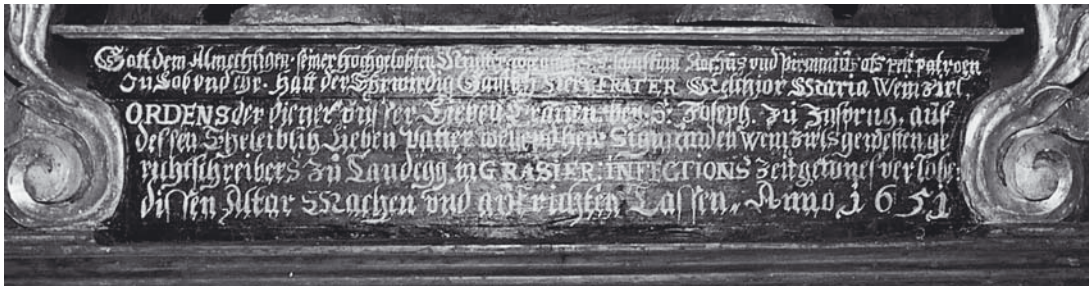 Gott dem Almechtigen. seiner hochgelobten Muetter vnd auch S: Sebastian Rochus vnd Pirminius als pest patronen
Zu Lob vnd Ehr. hatt der Ehrwirdig Gaistlich Herr FRATER Melchior Maria Weinzirl,
ORDENS der diener vnsser Lieben Frauen, bey S: Joseph. zu Jnsprug, auß
dessen Eheleiblich Lieben vatter weilend herr Sigmunden weinzirls gewesten ge
richtschreibers zu Landegg in GRASIER: INFECTIONS zeit getones verlobe:
dissen Altar Machen vnd aufrichten Lassen. Anno 1651